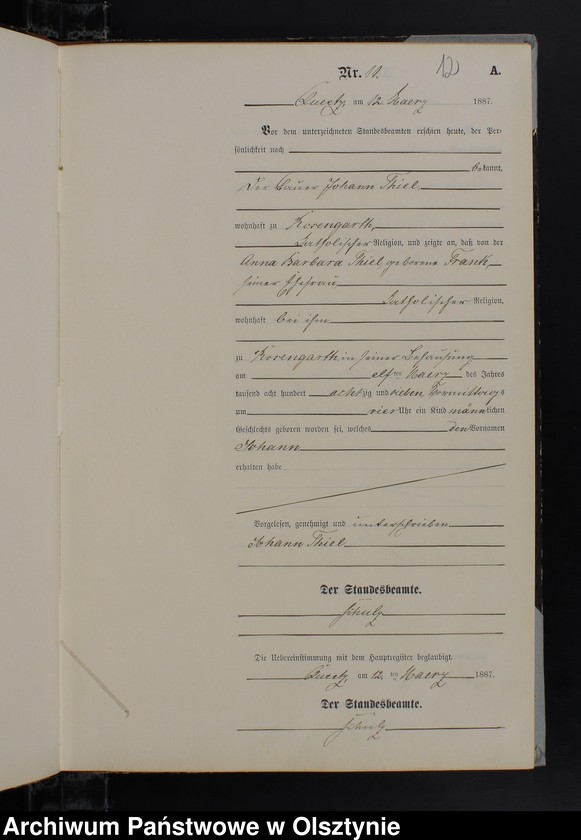 Nr. 11.
12
A.
Queetz am 12 Maerz 1887.
Vor dem unterzeichneten Standesbeamten erschien heute, der Per-
sönlichkeit nach
bekannt,
der Bauer Johann Thiel
wohnhaft zu Rosengarth,
katholischer Religion, und zeigte an, daß von der
Anna Barbara Thiel geborene Frank
seiner Ehefrau
katholischer Religion,
wohnhaft bei ihm
zu Rosengarth in seiner Behausung
am elften Maerz des Jahres
tausend acht hundert achtzig und sieben, Vormittags
um vier Uhr ein Kind männlichen
Geschlechts geboren worden sei, welches den Vornamen
Johann
erhalten habe.
Vorgelesen, genehmigt und unterschrieben
Johann Thiel
Der Standesbeamte.
Schulz
Die Uebereinstimmung mit dem Hauptregister beglaubigt.
Queetz, am 12. ten Maerz 1887.
Der Standesbeamte.
Schulz
Archiwum Państwowe w Olsztynie